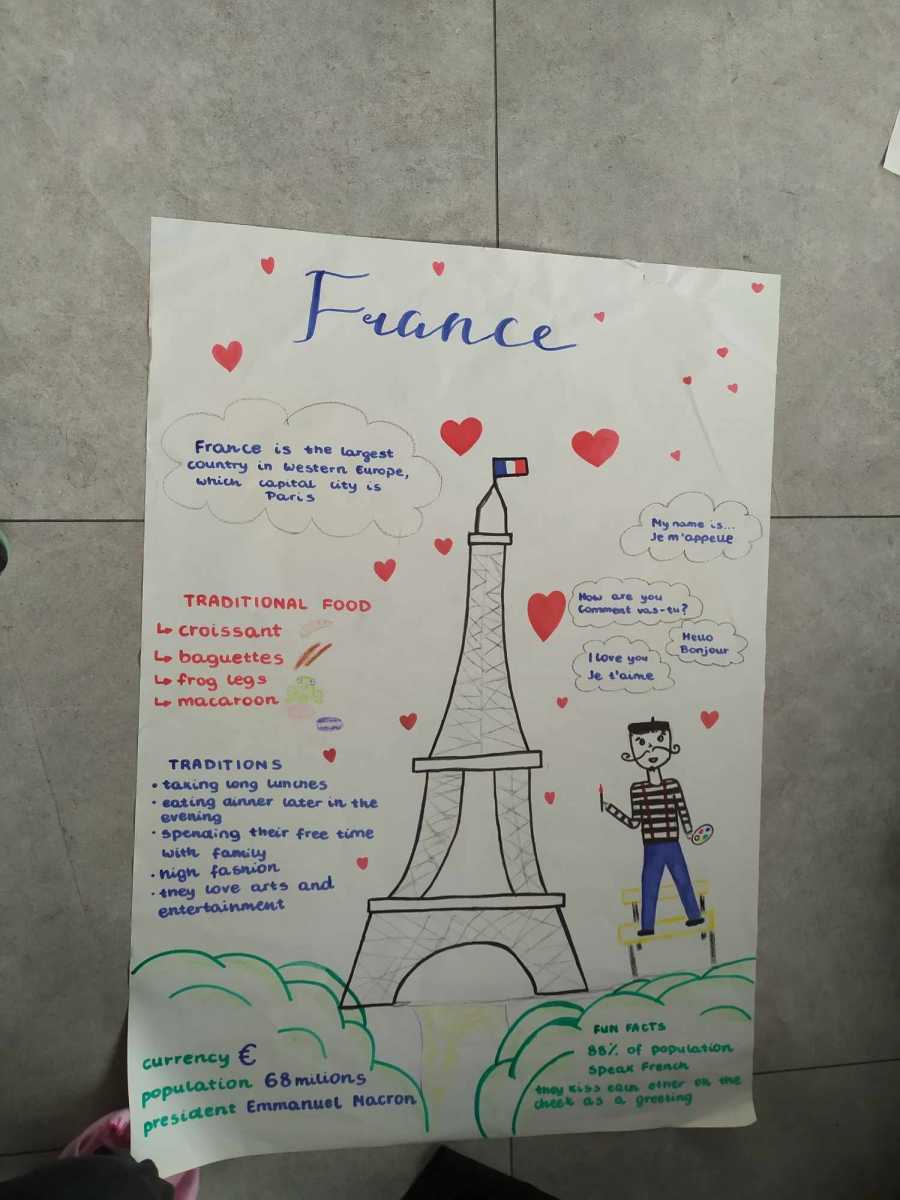 France
France is the largest
country in Western Europe,
which capital city is
Paris
My name is...
Je m'appelle
How are you
Comment vas-tu?
Hello
Bonjour
I love you
Je t'aime
TRADITIONAL FOOD
↳ croissant
↳ baguettes
↳ frog legs
↳ macaroon
TRADITIONS
• taking long lunches
• eating dinner later in the
evening
• spending their free time
with family
• high fashion
• they love arts and
entertainment
currency €
population 68 milions
president Emmanuel Macron
FUN FACTS
88% of population
speak French
they kiss each other on the
cheek as a greeting